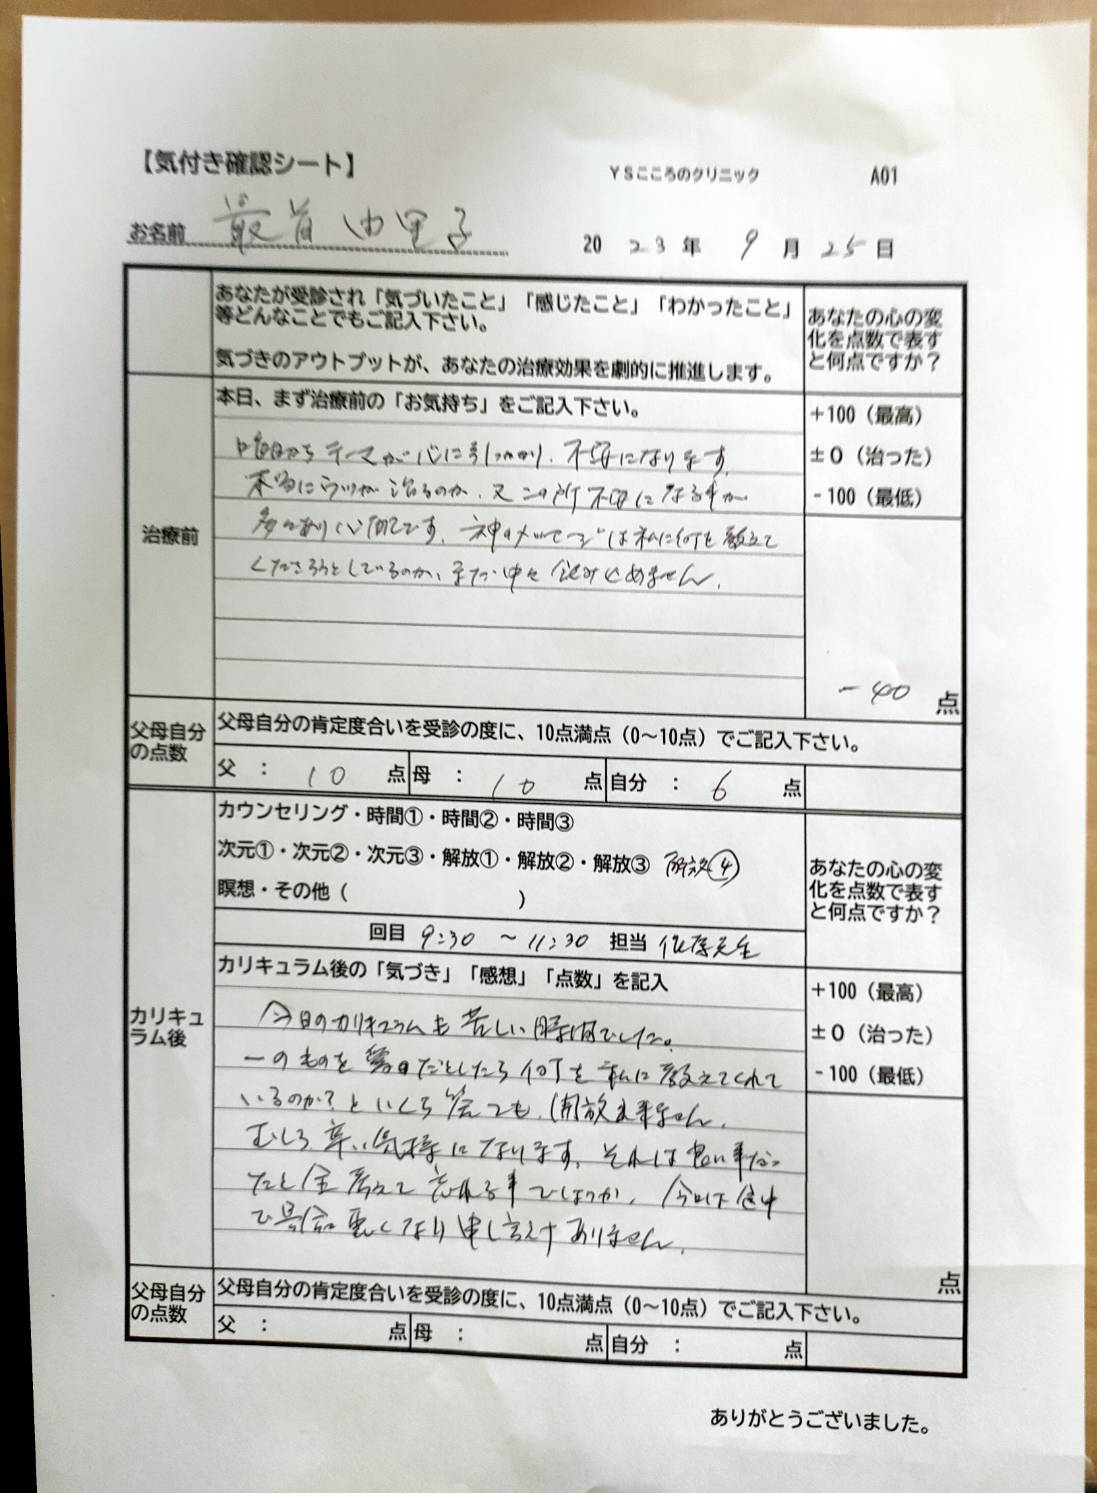 【気付き確認シート】 YSこころのクリニック A01
お名前 最首由里子 2023年 9月 25日
あなたが受診され「気づいたこと」「感じたこと」「わかったこと」
等どんなことでもご記入下さい。
気づきのアウトプットが、あなたの治療効果を劇的に推進します。
あなたの心の変
化を点数で表す
と何点ですか？
治療前
本日、まず治療前の「お気持ち」をご記入下さい。
からテーマが心に引っかかり、不安になります。
本当にウツが治るのか、又この所不安になる事が
多々あり心配です。神のメッセージは私に何を教えて
くださろうとしているのか、まだ中々飲み込めません。
+100（最高）
±0（治った）
-100（最低）
-40 点
父母自分
の点数
父母自分の肯定度合いを受診の度に、10点満点（0～10点）でご記入下さい。
父 ： 10 点 母 ： 10 点 自分 ： 6 点
カリキュ
ラム後
カウンセリング・時間①・時間②・時間③
次元①・次元②・次元③・解放①・解放②・解放③ 解放④
瞑想・その他（ ）
回目 9:30 ～ 11:30 担当 先生
あなたの心の変
化を点数で表す
と何点ですか？
カリキュラム後の「気づき」「感想」「点数」を記入
今日のカリキュラムも苦しい時間でした。
一のものを だとしたら何を私に教えてくれて
いるのか？といくら ても、開放 来ません。
むしろ辛い気持になります。それは 事だっ
たと 考えて忘れる事でしょうか。今日は途中
で具合悪くなり申し訳ありません。
+100（最高）
±0（治った）
-100（最低）
点
父母自分
の点数
父母自分の肯定度合いを受診の度に、10点満点（0～10点）でご記入下さい。
父 ： 点 母 ： 点 自分 ： 点
ありがとうございました。